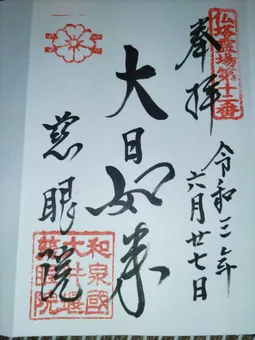 仏塔霊場第十二番
奉拝
令和三年
六月廿七日
大日如来
慈眼院
和泉國
大井堰
慈眼院